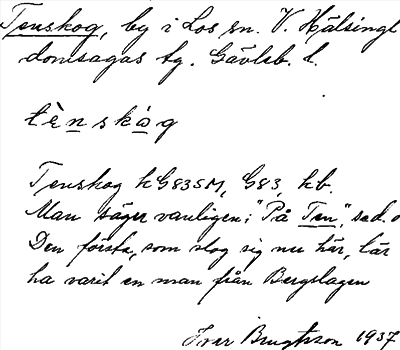 Tenskog, by i Los sn. V. Hälsingl
domsagas tg. Gävleb. l.
tènskòg
Tenskog hG83SM, G83, hb.
Man säger vanligen: "På Ten", sed. o
Den första, som slog sig ner här, lär
ha varit en man från Bergslagen
Ivar Bengtsson 1937